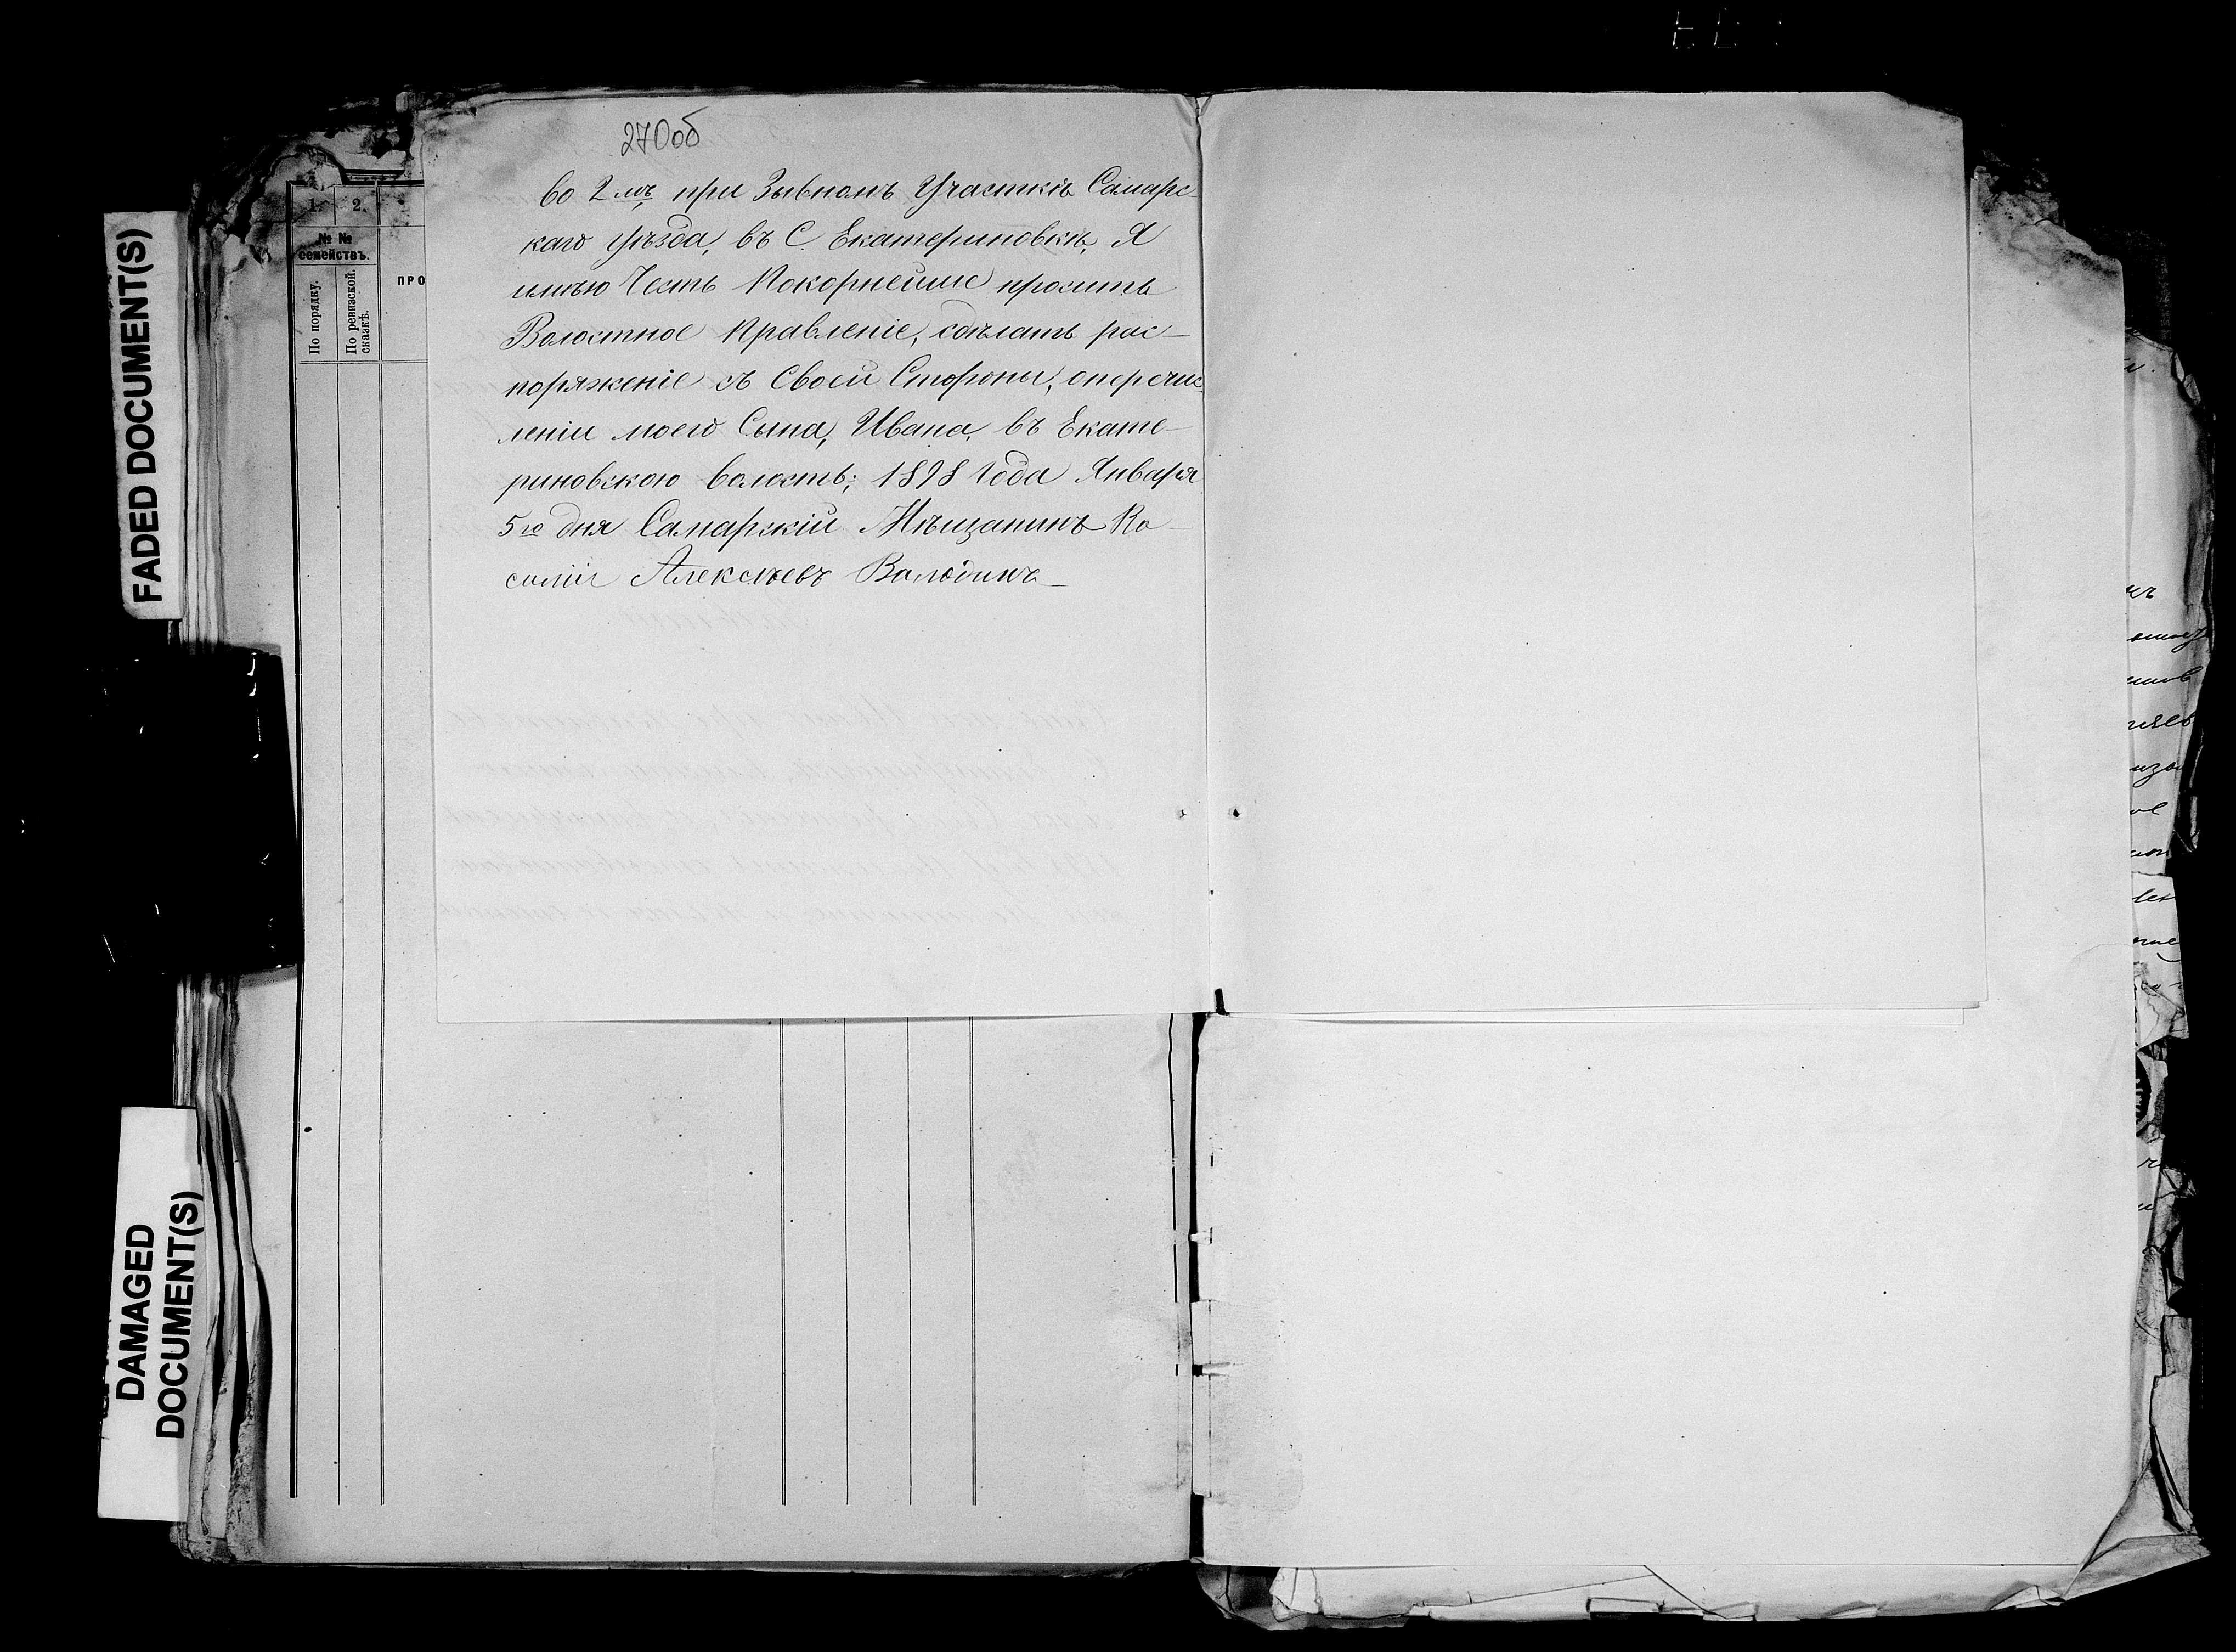 270об
во 2мъ при Зывномъ Участкѣ Самарс-
каго Уѣзда, въ С. Екатериновкѣ, Я
имѣю Честь Покорнейше просить
Волостное Правленіе, сдѣлать рас-
поряженіе съ Своей Стороны, оперечис-
леніи моего Сына, Ивана, въ Екате-
риновскою волость; 1898 Года Января
5го дня Самарскій Мѣщанинъ Ко-
Алексѣевъ Володинъ
1. 2.
№ №
семействъ.
По порядку.
По ревизской
сказкѣ.
ПРО
FADED DOCUMENT(S)
DAMAGED
DOCUMENT(S)